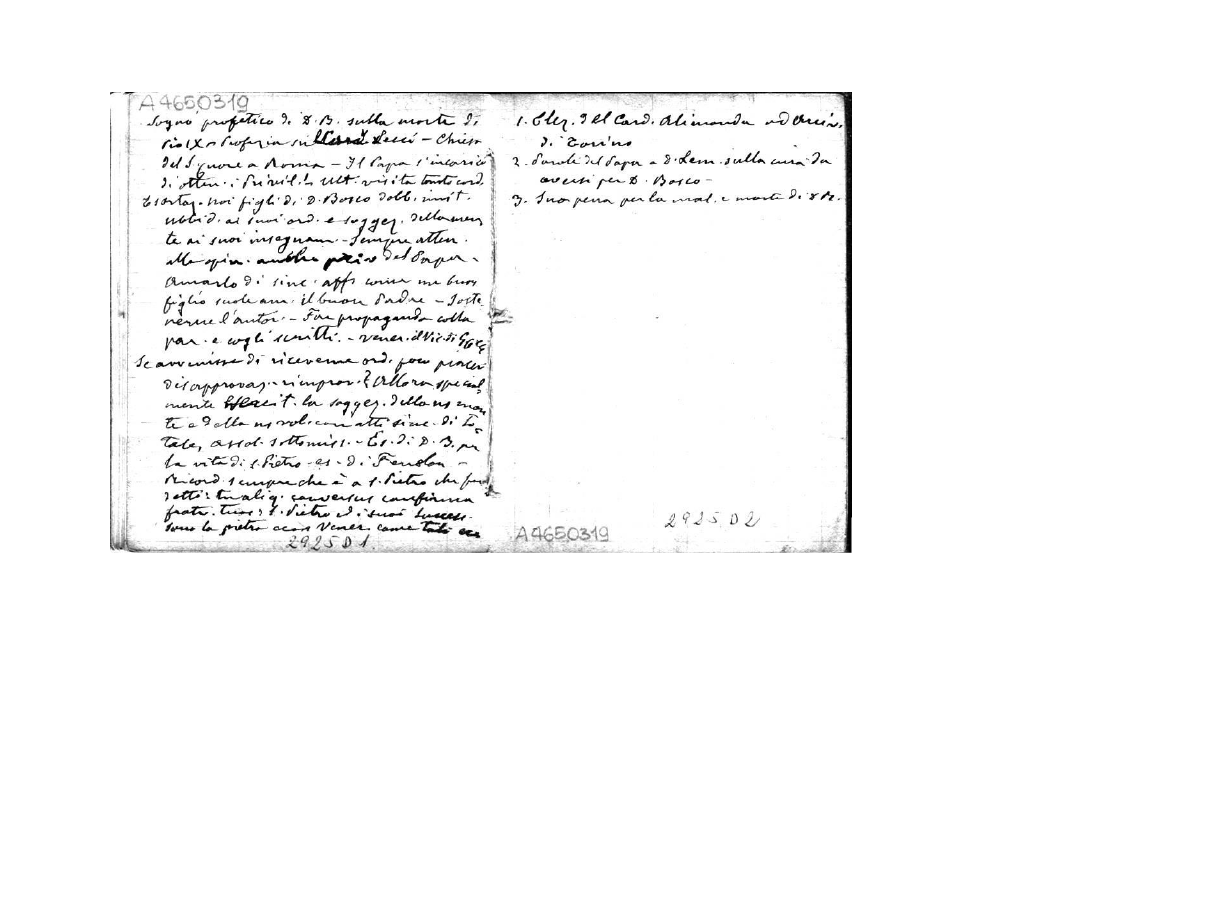 A4650319
Sogno profetico di D.B. sulla morte di
Pio IX - Profezia sul Card. Pecci - Chiesa
del S. Cuore a Roma - Il Papa l'incarica
di otten. i Privil. - Ult. visita tanto cord.
Esortaz. Noi figli di D. Bosco dobb. imit.
ubbid. ai suoi ord. e soggez. della men
te ai suoi insegnam. - Sempre atten.
alle opin. anche priv. del Papa -
Amarlo di sinc. aff. come un buon
figlio suole am. il buon Padre - Soste
nerne l'autor. - Far propaganda colla
par. e cogli scritti. - vener. il Vic. di G.C.
Se avvenisse di riceverne ord. poco piacev.
disapprovaz. - rimprov.? Allora special
mente la soggez. della ns men
te e della ns vol. con atti sinc. di to
tale, assol. sottomiss. - Es. di D. B. per
la vita di S. Pietro - es. di Fenelon -
Ricord. sempre che è a S. Pietro che fu
detto: tu aliq. conversus confirma
fratr. tuos; S. Pietro ed i suoi success.
sono la pietra Vener. come tale
2925 D 1.
1. Elez. del Card. Alimonda ad Arciv.
di Torino
2. Parole del Papa a D. Lem. sulla cura da
aversi per D. Bosco -
3. Sua pena per la mal. e morte di D B.
2925 D 2
A4650319